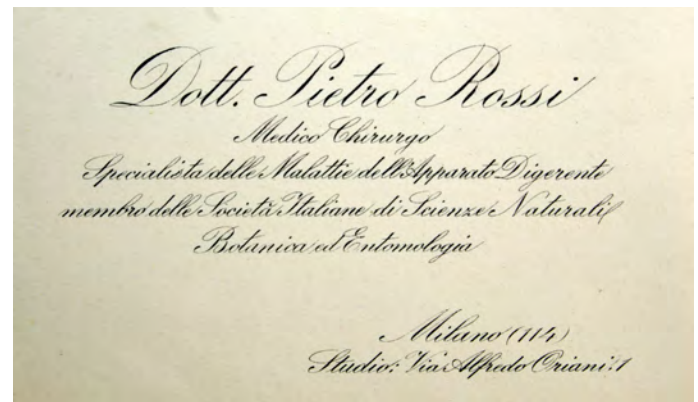 Dott. Pietro Rossi
Medico Chirurgo
Specialista delle Malattie dell'Apparato Digerente
membro delle Società Italiane di Scienze Naturali,
Botanica ed Entomologia
Milano (114)
Studio: Via Alfredo Oriani, 1